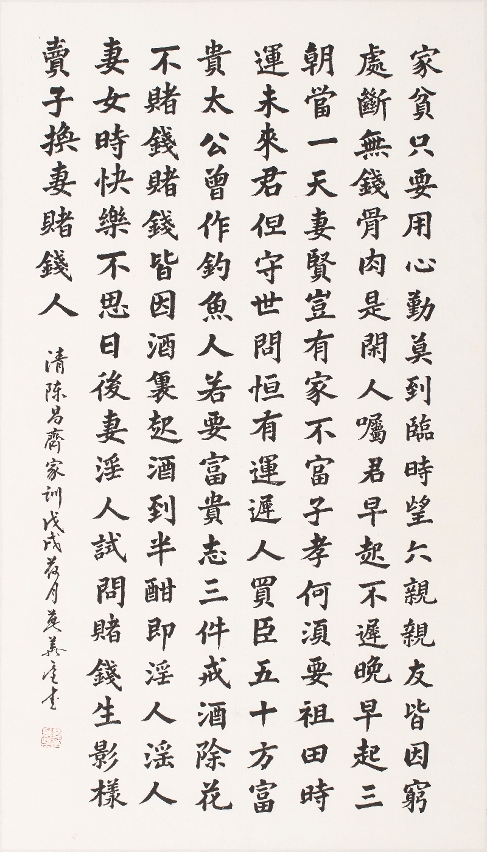 家貧只要用心勤莫到臨時望六親親友皆因窮
處斷無錢骨肉是閑人囑君早起不遲晚早起三
朝當一天妻賢豈有家不富子孝何須要祖田時
運未來君但守世問恒有運遲人買臣五十方富
貴太公曾作釣魚人若要富貴志三件戒酒除花
不賭錢賭錢皆因酒裏起酒到半酣即淫人淫人
妻女時快樂不思日後妻淫人試問賭錢生影樣
賣子換妻賭錢人
清陳昌齊家訓戊戌月莫義書